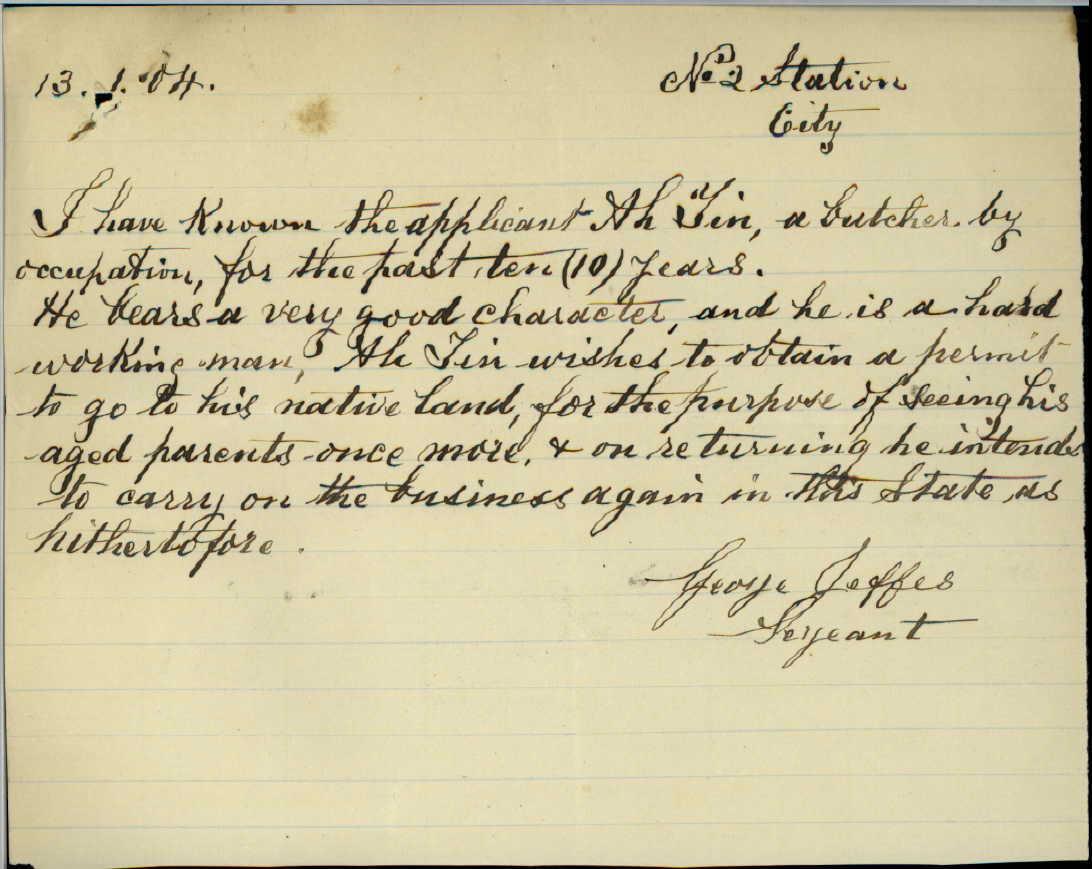 13. 1. '04.
No 2 Station
City
I have Known the applicant Ah Tin, a butcher by
occupation, for the past ten (10) years.
He bears a very good character, and he is a hard
working man, Ah Tin wishes to obtain a permit
to go to his native land, for the purpose of seeing his
aged parents once more, & on returning he intends
to carry on the business again in this State as
hithertofore.
George Jeffes
Sergeant